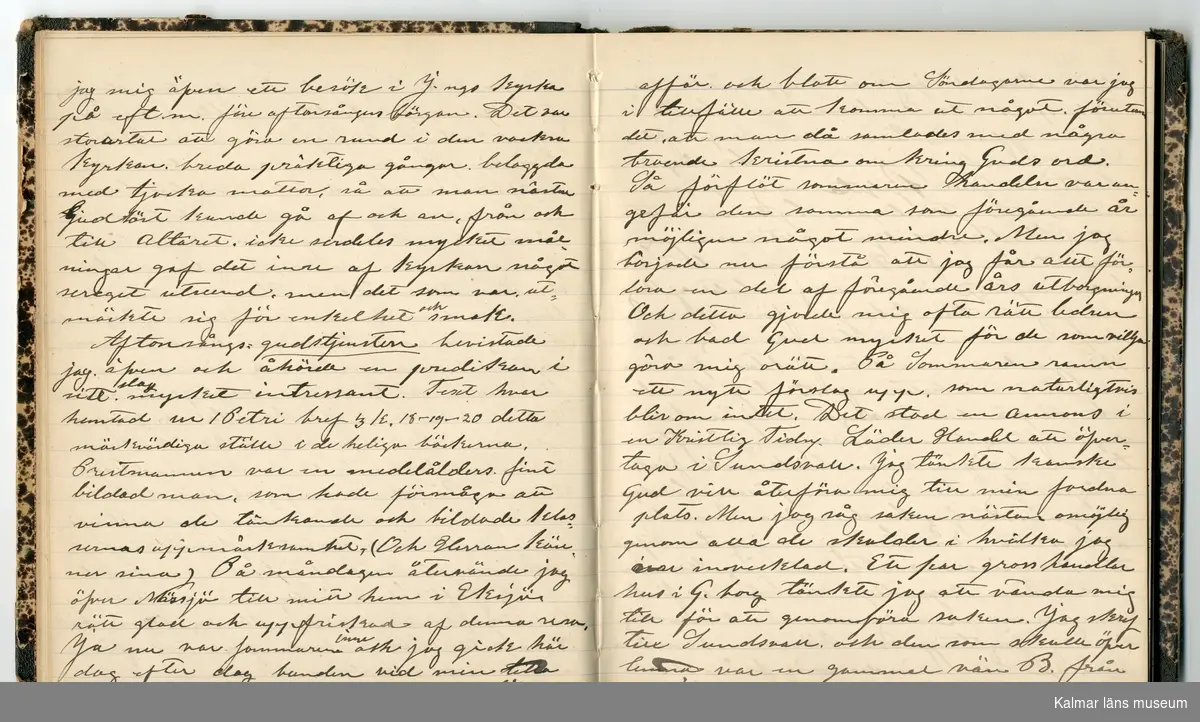 jag mig äpen ett besök i J-ngs Kyrka
på eft.m. före aftonsångens början. Det var
storartat att göra en rund i den vackra
Kyrkan. breda präktiga gångar. belaggda
med tjocka mattor, så att man nästan
ljudlöst kunde gå af och an, från och
till Altaret. icke serdeles mycket mål-
ningar gaf det inre af Kyrkan något
sreget utseend. men det som var. ut-
märkte sig för enkelhet och smak.
Aftonsångs-gudstjensten bevistade
jag. äpen och åhörde en predikan i
sitt slag mycket intressant. Text hvar
hemtad ur 1 Petri bref 3/K, 18-19-20 detta
märkvärdiga ställe i de heliga böckerna.
Prestmannen var en medelålders. fint
bildad man, som hade förmåga att
vinna de tänkande och bildade klas-
sernas uppmärksamhet, (Och Herran kän-
ner sina) På måndagen återvände jag
öfver Nässjö till mitt hem i Eksjö.
rätt glad och uppfriskad af denna resa.
Ja nu var sommaren inne och jag gick här
dag efter dag bunden vid min lilla
affär. och blott om Söndagarne var jag
i tillfälle att komma ut något. förutom
det, att man då samlades med några
troende kristna omkring Guds ord.
Så förflöt sommaren Handeln var un-
gefär den samma som föregående år
möjligen något mindre. Men jag
började nu förstå att jag får att för-
lora en del af föregående års utborgningar
Och detta gjorde mig ofta rätt ledsen
och bad Gud mycket för de som villja
göra mig orätt. På Sommaren rann
ett nytt förslag upp, som naturligtvis
blir om intet. Det stod en annons i
en Kristlig Tidng. Läder Handel att öfver-
taga i Sundsvall. Jag tänkte kanske
Gud vill återföra mig till min fordna
plats. Men jag såg saken nästan omöjlig
genom alla de skulder i hvilka jag
var invecklad. Ett par grosshandlar
hus i G. borg tänkte jag att vända mig
till för att genomföra saken. Jag skref
till Sundsvall. och den som skulle öfver
lemna var en gammal vän B. från
Kalmar läns museum